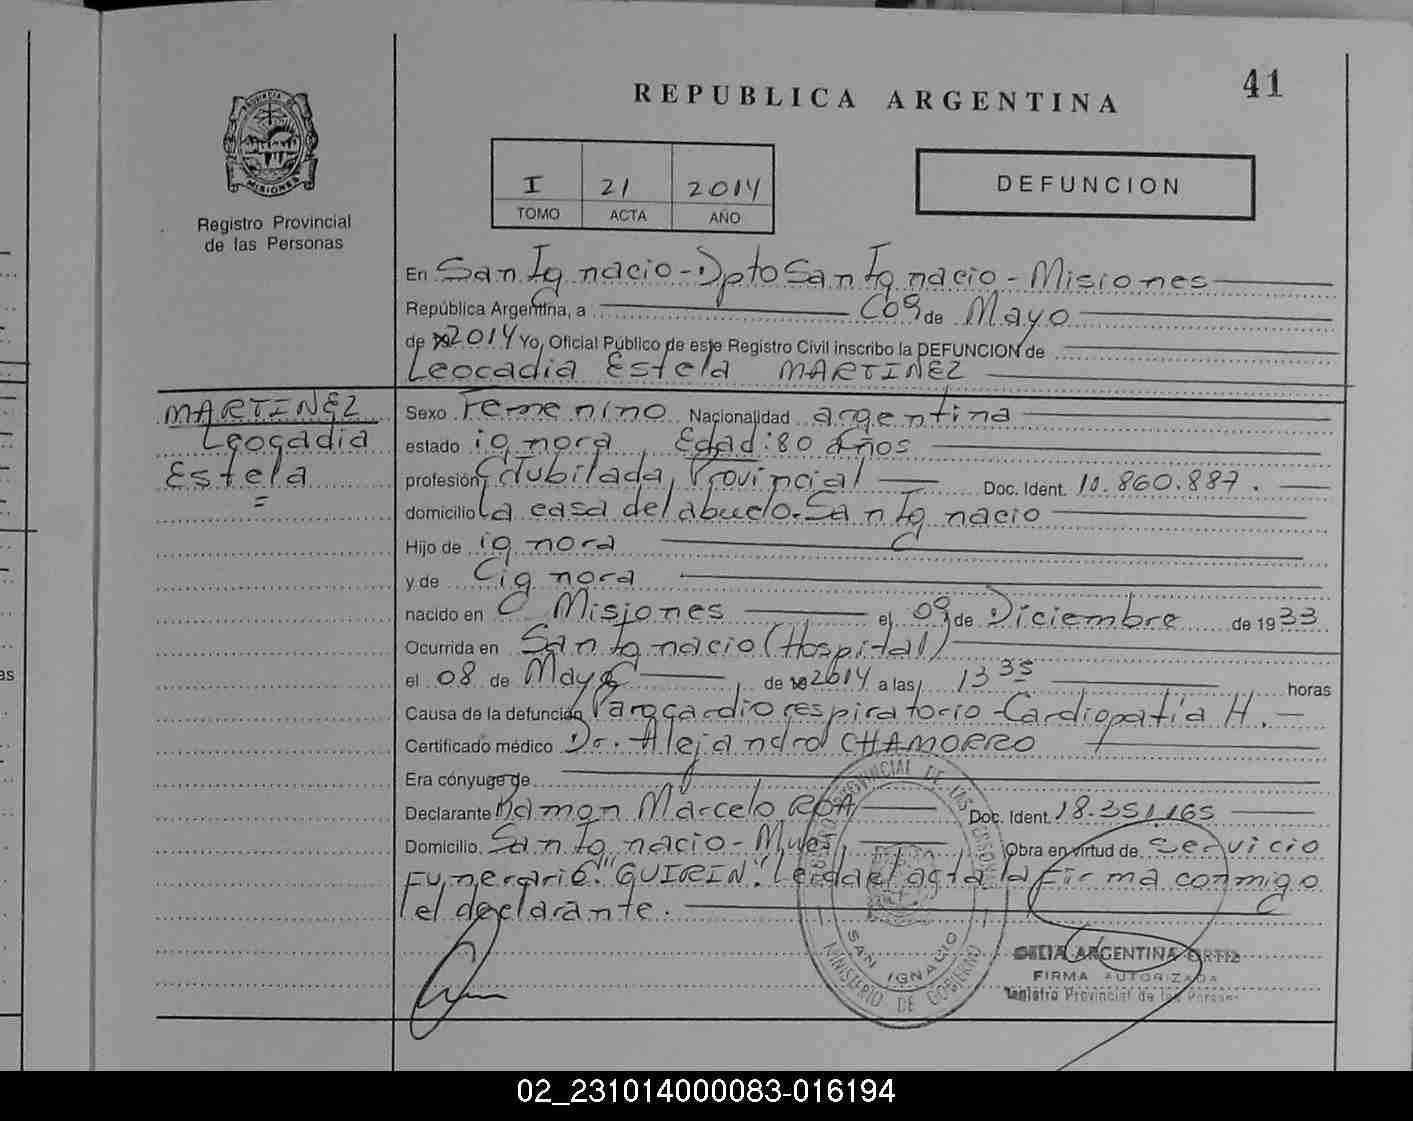 41
REPUBLICA ARGENTINA
PROVINCIA DE
MISIONES
Registro Provincial
de las Personas
I 21 2014
TOMO ACTA AÑO
DEFUNCION
En San Ignacio - Dpto San Ignacio - Misiones
República Argentina, a 09 de Mayo
de 2014 Yo, Oficial Público de este Registro Civil inscribo la DEFUNCION de
Leocadia Estela MARTINEZ
MARTINEZ
Leocadia
Estela
Sexo Femenino Nacionalidad argentina
estado ignora Edad: 80 Años
profesión Jubilada Provincial Doc. Ident. 10.860.887.
domicilio La casa del abuelo. San Ignacio
Hijo de ignora
y de ignora
nacido en Misiones el 09 de Diciembre de 1933
Ocurrida en San Ignacio (Hospital)
el 08 de Mayo de 2014 a las 13 35 horas
Causa de la defunción Parocardiorespiratorio - Cardiopatía H.
Certificado médico Dr. Alejandro CHAMORRO
Era cónyuge de
Declarante Ramon Marcelo ROA Doc. Ident. 18.351.165
Domicilio San Ignacio - Mnes. Obra en virtud de Servicio
Funerario "GUIRIN". Leida el acta la firma conmigo
el declarante.
PROVINCIAL DE LAS PERSONAS
SAN IGNACIO
MINISTERIO DE GOBIERNO
ARGENTINA ORTIZ
FIRMA AUTORIZADA
Registro Provincial de las Personas
02_231014000083-016194